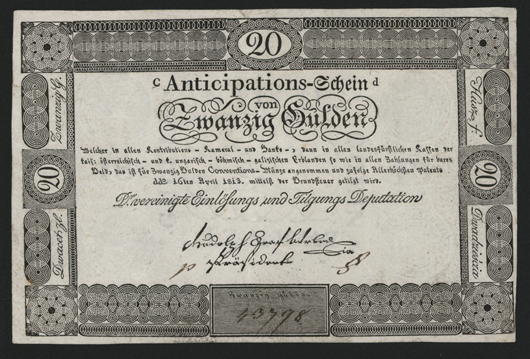 20
c Anticipations-Schein d
von
Zwanzig Gulden
Welcher in allen Kontributions- Kameral- und Banko-, dann in allen landesfürstlichen Kassen der
kais: österreichisch- und k. ungarisch- böhmisch- galizischen Erblanden so wie in allen Zahlungen für bares
Geld, das ist für Zwanzig Gulden Conventions-Münze angenommen und zufolge Allerhöchsten Patents
ddo 16ten April 1813. mittelst der Grundsteuer getilgt wird.
D. vereinigte Einlösungs und Tilgungs Deputation
Rudolph Graf
Präsident
Zwanzig G.
20
20
Zwanzig Gulden
43798